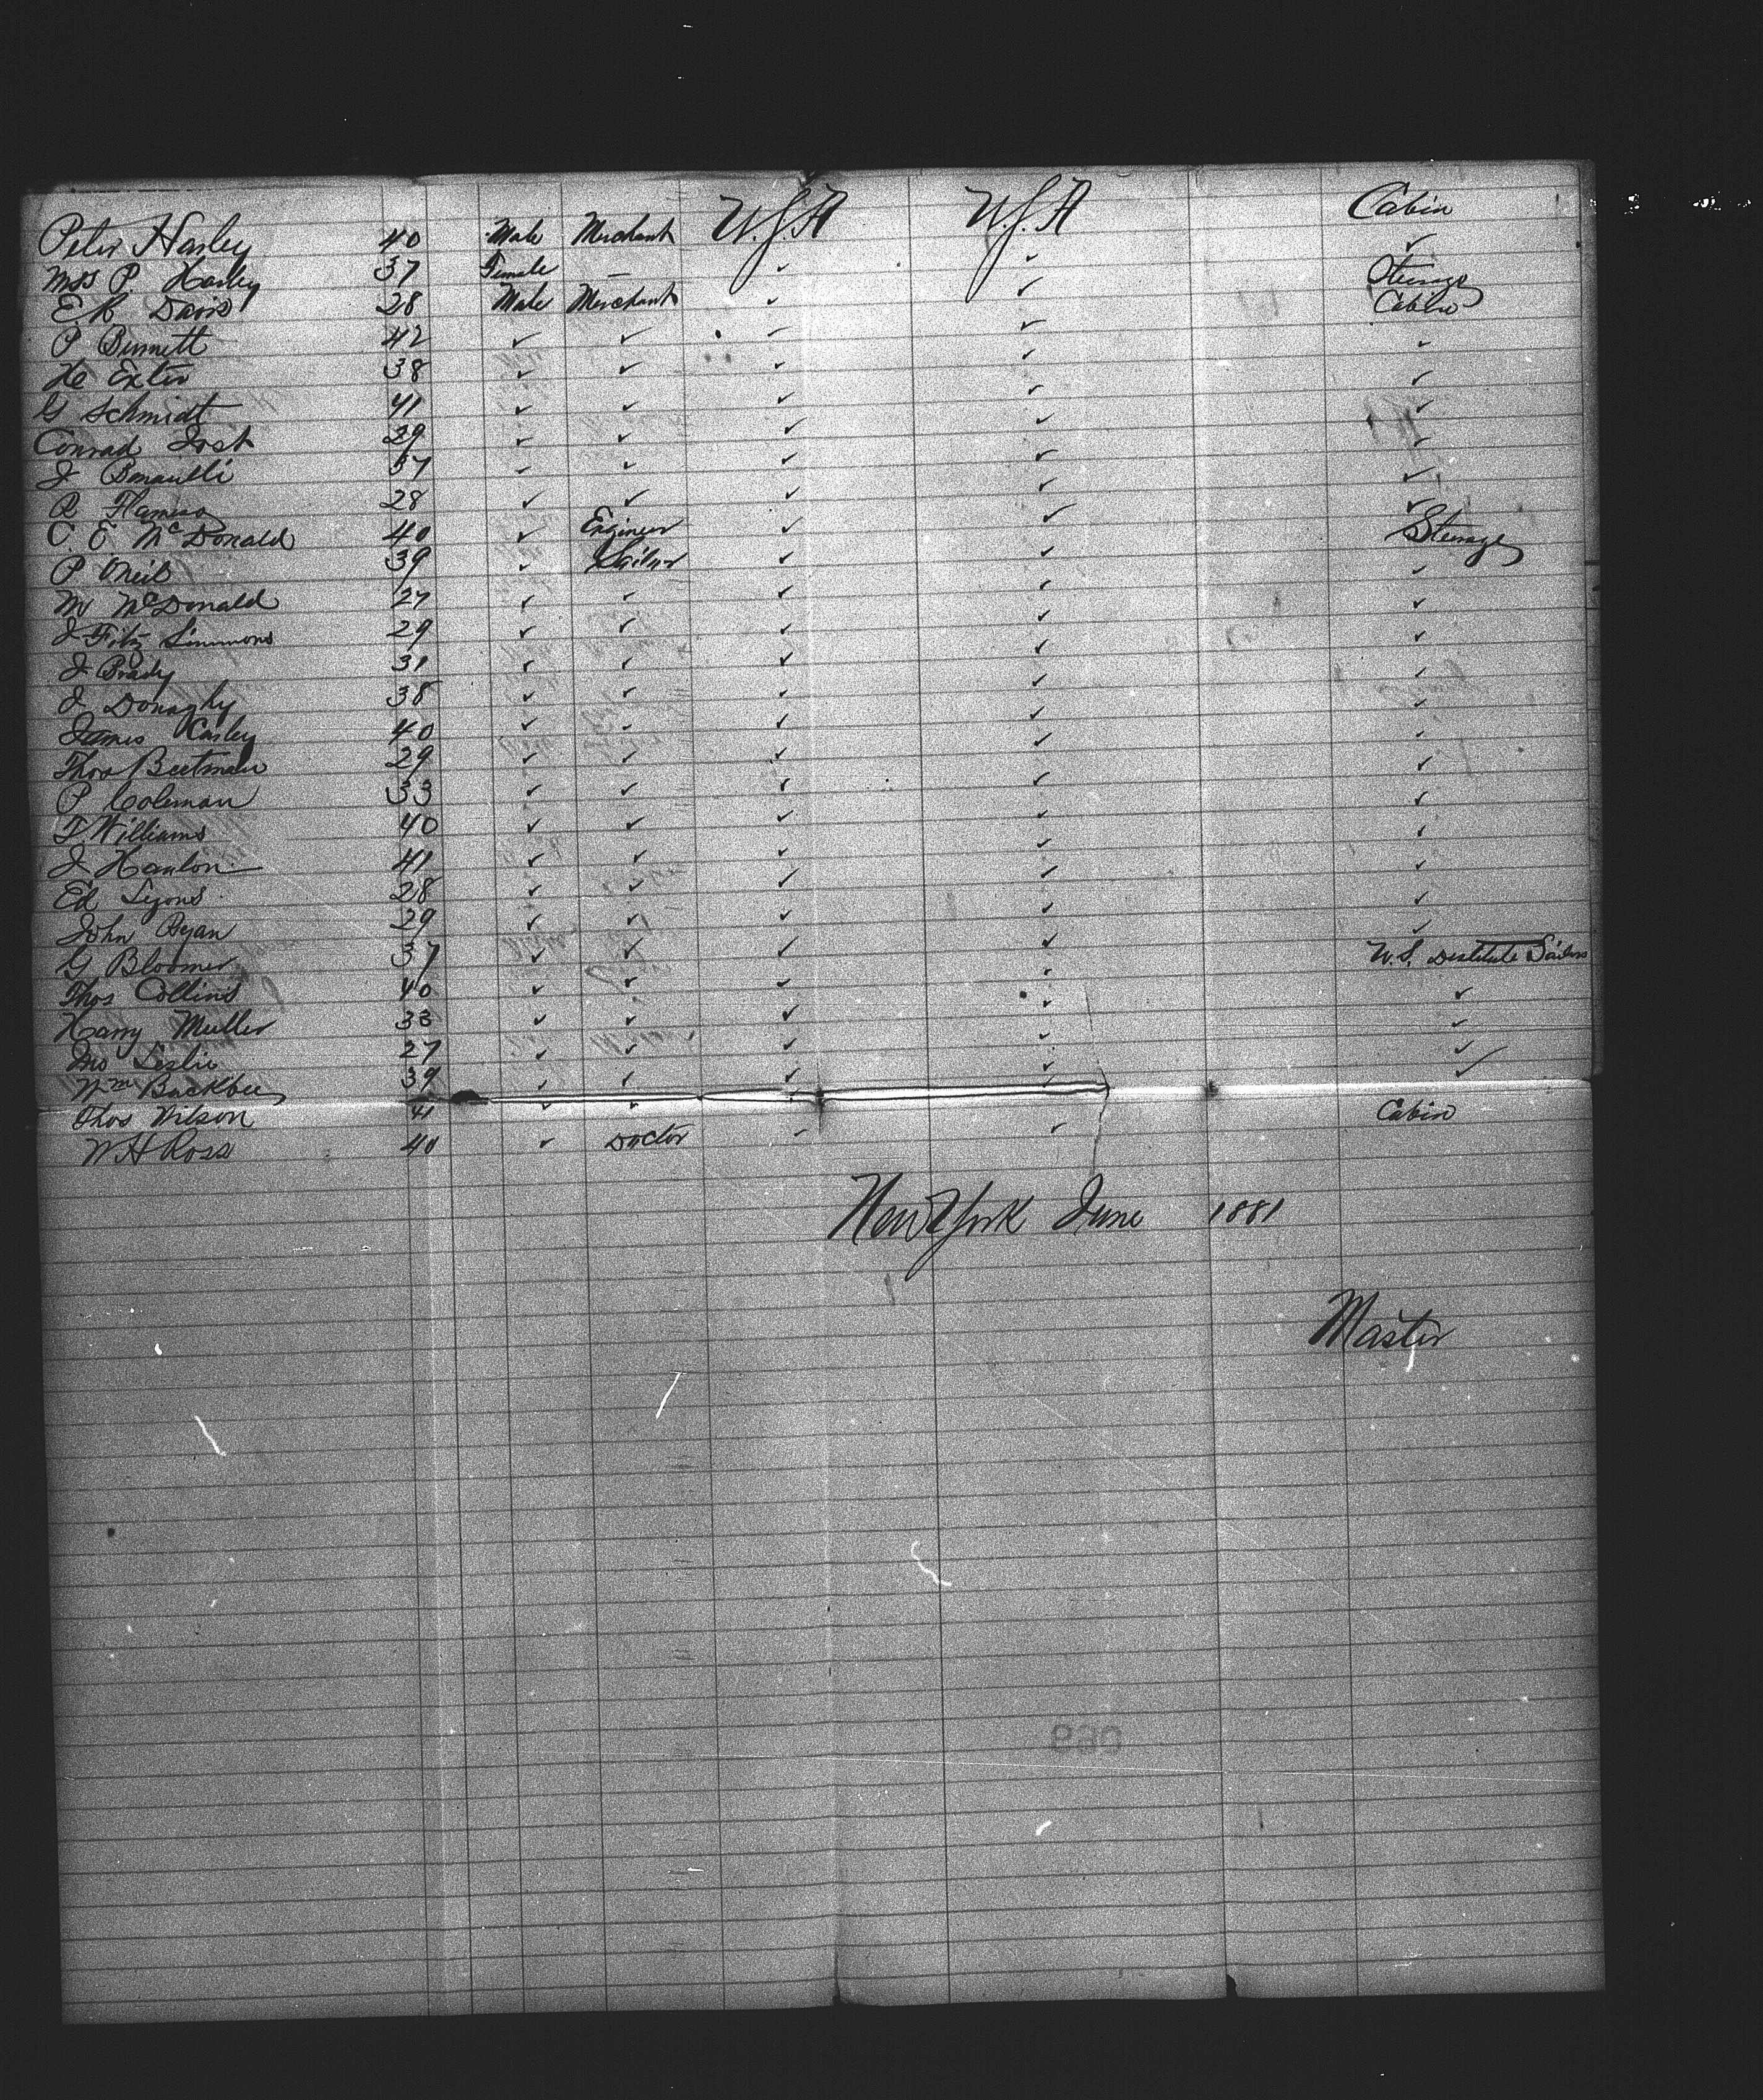 Peter Harley 40 Male Merchant U.S.A U.S.A Cabin
Mrs P. Harley 37 Female — ✓ ✓ ✓
E R Davis 28 Male Merchant ✓ ✓ Steerage
P Bennett 42 ✓ ✓ ✓ ✓ Cabin
H Exter 38 ✓ ✓ ✓ ✓ ✓
G Schmidt 41 ✓ ✓ ✓ ✓ ✓
Conrad Jost 29 ✓ ✓ ✓ ✓ ✓
J 37 ✓ ✓ ✓ ✓ ✓
28 ✓ ✓ ✓ ✓ ✓
C. E McDonald 40 ✓ Engineer ✓ ✓ ✓
P ONeil 39 ✓ Sailor ✓ ✓ Steerage
M McDonald 27 ✓ ✓ ✓ ✓ ✓
J Fitz Simmons 29 ✓ ✓ ✓ ✓ ✓
J Brady 31 ✓ ✓ ✓ ✓ ✓
J Donaghy 38 ✓ ✓ ✓ ✓ ✓
James 40 ✓ ✓ ✓ ✓ ✓
Thos 29 ✓ ✓ ✓ ✓ ✓
P Coleman 33 ✓ ✓ ✓ ✓ ✓
T Williams 40 ✓ ✓ ✓ ✓ ✓
J Hanlon 41 ✓ ✓ ✓ ✓ ✓
Ed Lyons 28 ✓ ✓ ✓ ✓ ✓
John Ryan 29 ✓ ✓ ✓ ✓ ✓
G Bloomer 37 ✓ ✓ ✓ ✓ ✓
Thos Collins 40 ✓ ✓ ✓ ✓ U.S. Destitute Sailors
Harry Muller 33 ✓ ✓ ✓ ✓ ✓
Jno Leslie 27 ✓ ✓ ✓ ✓ ✓
Wm Buckbee 39 ✓ ✓ ✓ ✓ ✓
Thos Wilson 41 ✓ ✓ ✓
W H Ross 40 ✓ Doctor ✓ ✓ Cabin
New York June 1881
Master